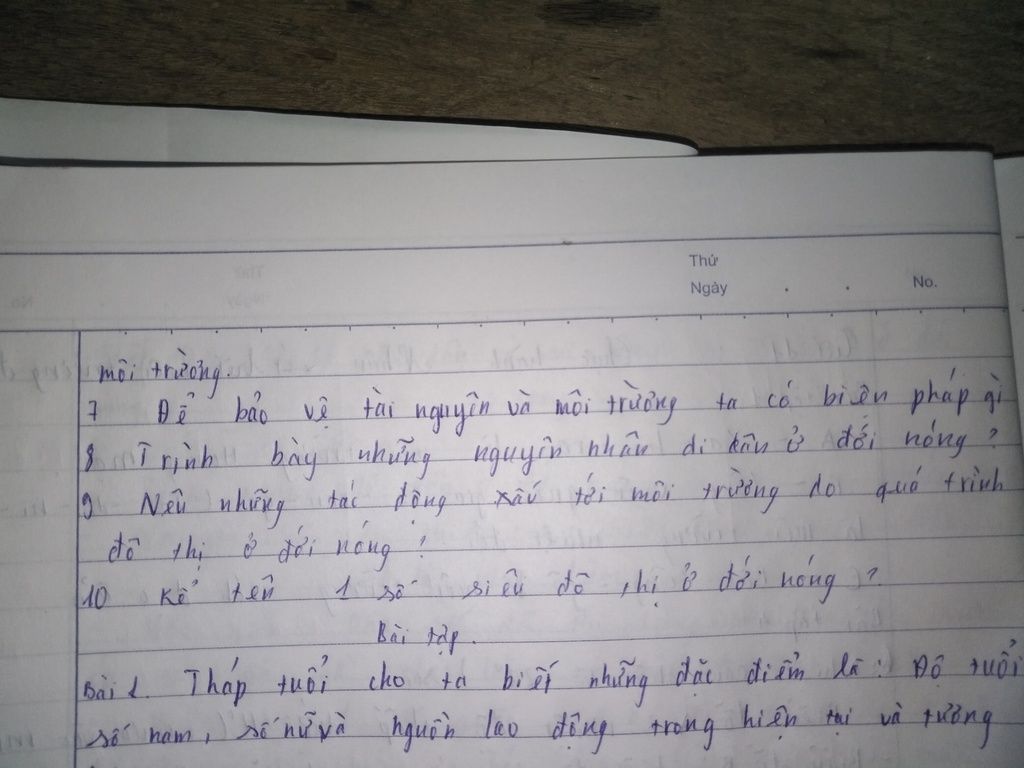 Thứ
Ngày . . No.
môi trường.
7 Để bảo vệ tài nguyên và môi trường ta có biện pháp gì
8 Trình bày những nguyên nhân di dân ở đới nóng ?
9 Nêu những tác động xấu tới môi trường do quá trình
đô thị ở đới nóng ?
10 Kể tên 1 số siêu đô thị ở đới nóng ?
Bài tập.
Bài 1. Tháp tuổi cho ta biết những đặc điểm là : Độ tuổi
số nam, số nữ và nguồn lao động trong hiện tại và tương